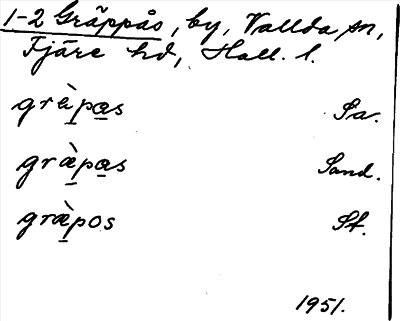 1-2 Gräppås, by, Vallda sn,
Fjäre hd, Hall. l.
græ̀pas Sa.
græ̀pas Sand.
græ̀pos St.
1951.